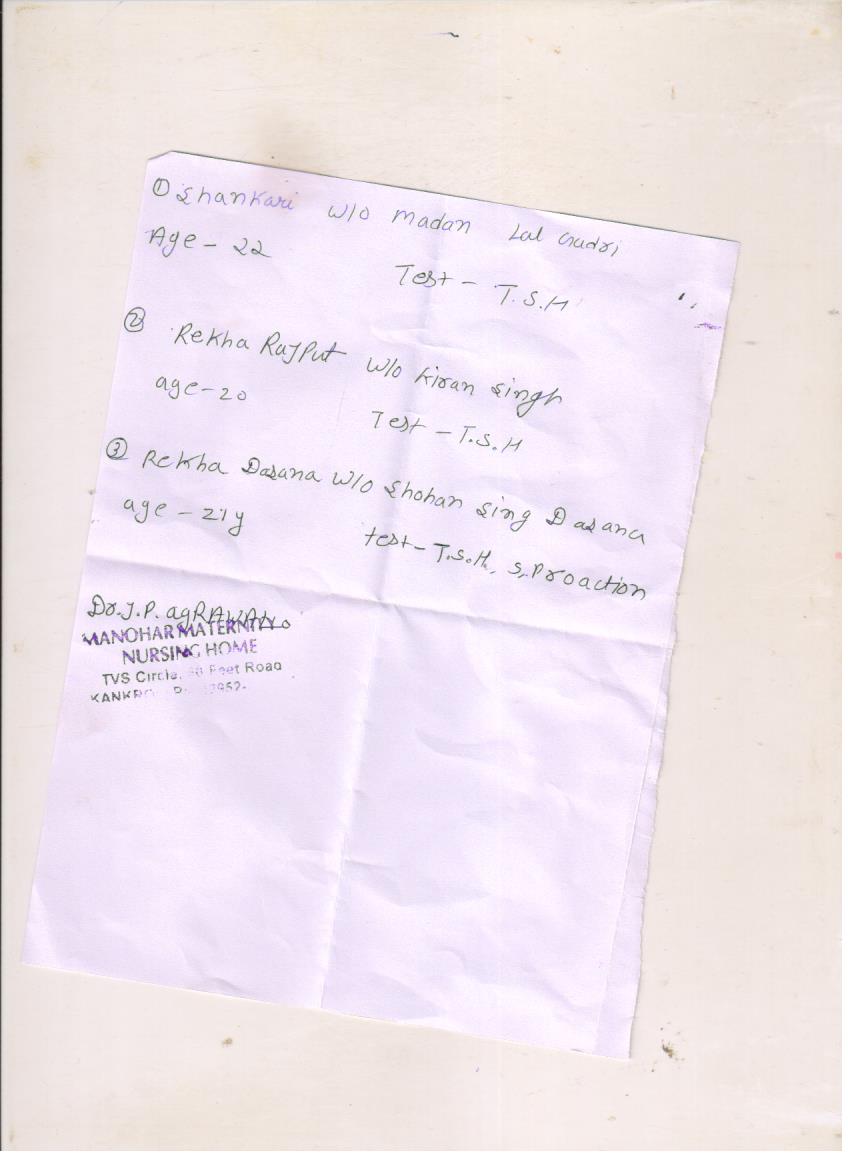 ① Shankari w/o madan Lal Gudri
Age - 22
Test - T.S.H
② Rekha Rajput w/o Kiran Singh
age - 20
Test - T.S.H
③ Rekha Dasana w/o Shohan Sing Dasana
age - 21y
test - T.S.H, S. Proaction
Dr. J.P. agRAWAL
MANOHAR MATERNITY
NURSING HOME
TVS Circle, Feet Road